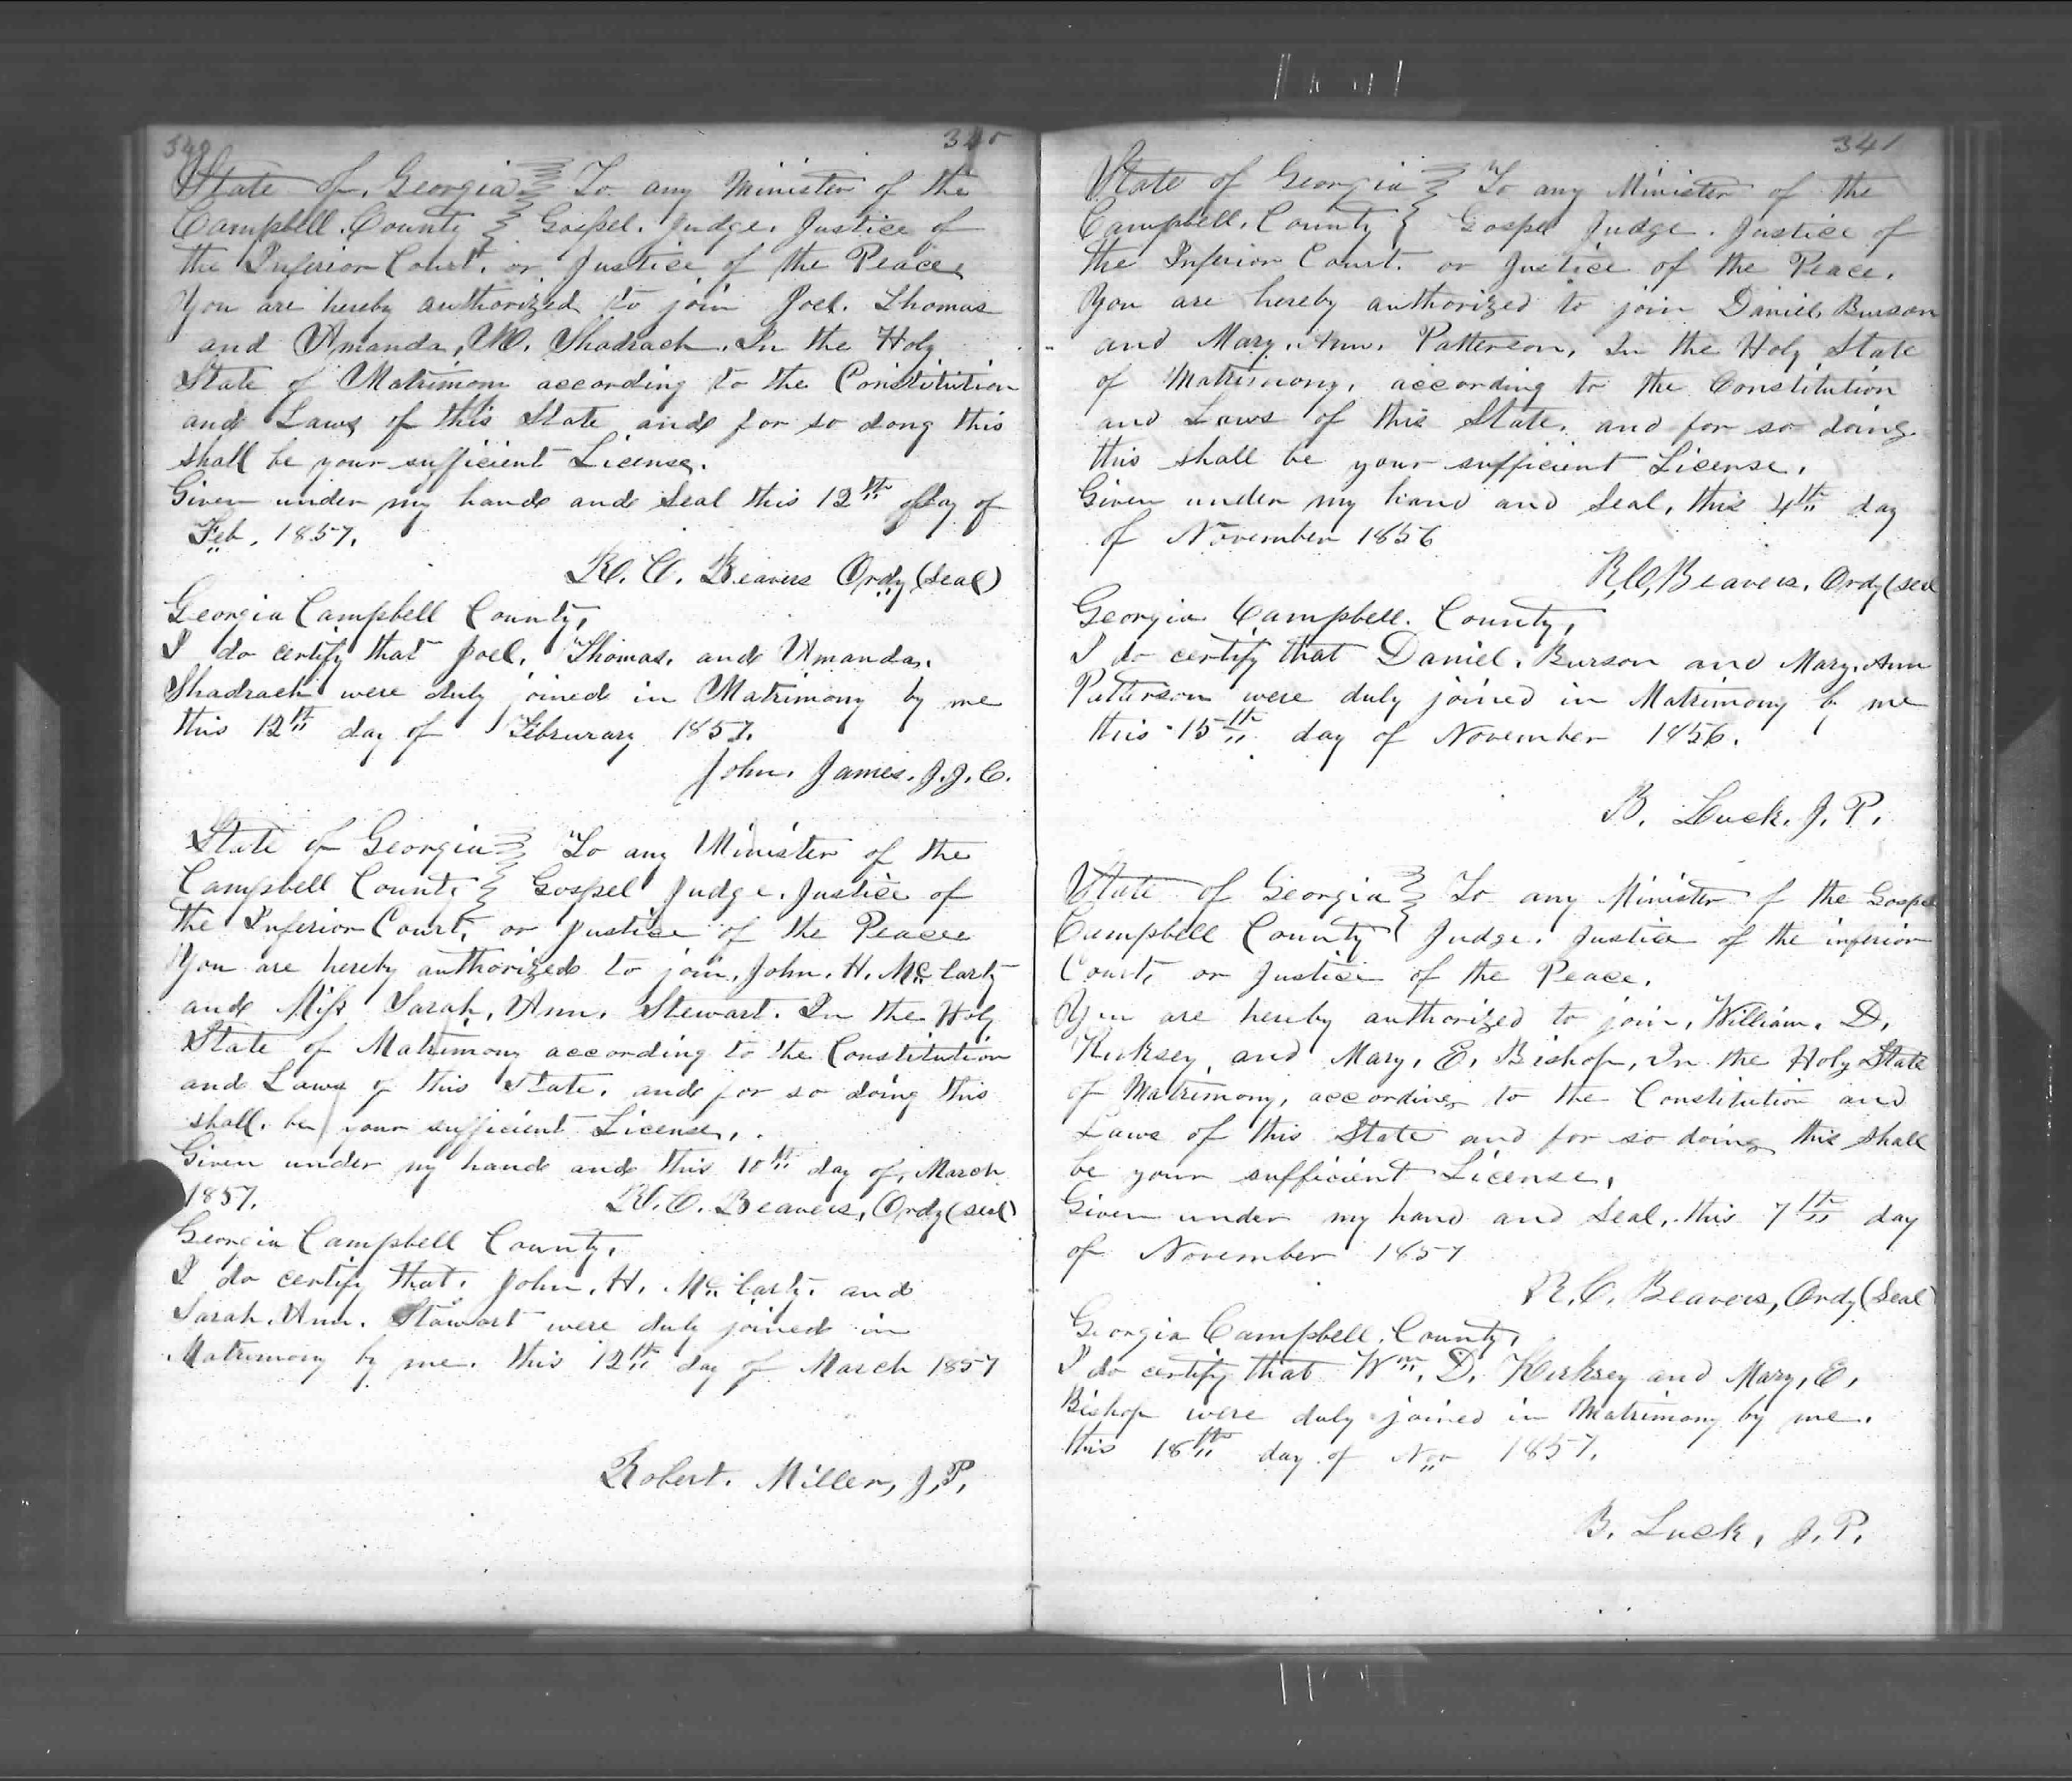 340 340
State of Georgia To any Minister of the
Campbell County Gospel. Judge. Justice of
the Inferior Court. or Justice of the Peace
You are hereby authorized to join Joel. Thomas
and Amanda, M. Shadrach. In the Holy
State of Matrimony according to the Constitution
and Laws of this State and for so dong this
shall be your sufficient License.
Given under my hand and Seal this 12th day of
Feb. 1857.
R. C. Beavers Ordy (Seal)
Georgia Campbell County,
I do certify that Joel. Thomas. and Amanda.
Shadrach were duly joined in Matrimony by me
this 12th day of Februrary 1857.
John. James. J.J.C.
State of Georgia To any Minister of the
Campbell County Gospel Judge. Justice of
the Inferior Court, or Justice of the Peace
You are hereby authorized to join. John. H. McCarty
and Miss Sarah. Ann. Stewart. In the Holy
State of Matrimony according to the Constitution
and Laws of this State. and for so doing this
shall. be your sufficient License.
Given under my hand and this 10th day of March
1857. R. C. Beavers, Ordy (seal)
Georgia Campbell County,
I do certify that. John. H. McCarty. and
Sarah. Ann. Stewart were duly joined in
Matrimony by me. this 12th day of March 1857
Robert. Miller, J.P.
341
State of Georgia To any Minister of the
Campbell. County Gospel Judge. Justice of
the Inferior Court. or Justice of the Peace.
You are hereby authorized to join Daniel. Burson
and Mary. Ann. Patterson, In the Holy State
of Matrimony, according to the Constitution
and Laws of this State. and for so doing.
this shall be your sufficient License.
Given under my hand and Seal, this 4th day
of November 1856
R.C. Beavers. Ordy (seal
Georgia Campbell. County,
I do certify that Daniel. Burson and Mary. Ann
Patterson were duly joined in Matrimony by me
this 15th day of November 1856.
B. Luck. J. P.
State of Georgia To any Minister of the Gospel
Campbell County Judge. Justice of the inferior
Court, or Justice of the Peace.
You are hereby authorized to join, William. D.
Kirksey, and Mary, E. Bishop, In the Holy State
of Matrimony, according to the Constitution and
Laws of this State and for so doing this shall
be your sufficient License,
Given under my hand and Seal, this 7th day
of November 1857
R. C. Beavers, Ordy (Seal)
Georgia Campbell. County,
I do certify that Wm. D. Kirksey and Mary, E,
Bishop were duly joined in Matrimony by me.
this 18th day of Nov 1857.
B. Luck, J. P.